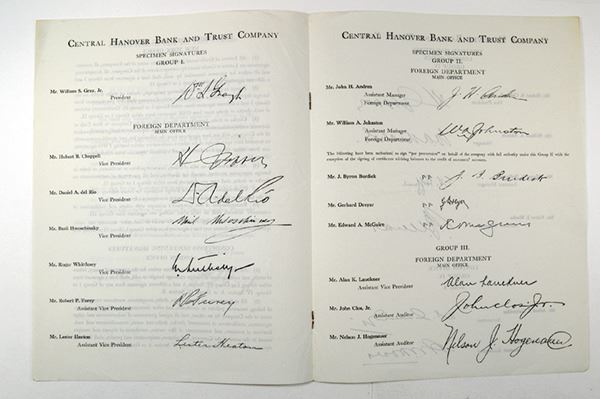 CENTRAL HANOVER BANK AND TRUST COMPANY
SPECIMEN SIGNATURES
GROUP I.
Mr. William S. Gray, Jr.
President
FOREIGN DEPARTMENT
MAIN OFFICE
Mr. Hubert B. Chappell
Vice President
Mr. Daniel A. del Rio
Vice President
D. A. del Rio
Mr. Basil Hwoschinsky
Vice President
Mr. Roger Whittlesey
Assistant Vice President
Mr. Robert P. Furey
Assistant Vice President
R P Furey
Mr. Lester Heaton
Assistant Vice President
Lester Heaton
CENTRAL HANOVER BANK AND TRUST COMPANY
SPECIMEN SIGNATURES
GROUP II.
FOREIGN DEPARTMENT
MAIN OFFICE
Mr. John H. Andren
Assistant Manager
Foreign Department
Mr. William A. Johnston
Assistant Manager
Foreign Department
Wm A Johnston
The following have been authorized to sign "per procuration" on behalf of the company with full authority under this Group II with the
exception of the signing of certificates relating balances to the credit of accounts' accounts.
Mr. J. Byron Burdick
P P
Mr. Gerhard Dreyer
P P
Mr. Edward A. McGuire
P P
GROUP III.
FOREIGN DEPARTMENT
MAIN OFFICE
Mr. Alan K. Lauckner
Assistant Vice President
Alan Lauckner
Mr. John Clos, Jr.
Assistant Auditor
John Clos Jr.
Mr. Nelson J. Hogenauer
Assistant Auditor
Nelson J. Hogenauer